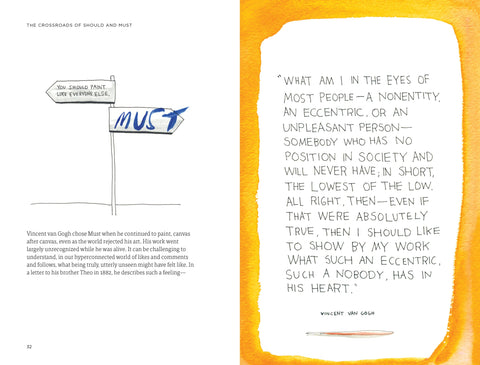 THE CROSSROADS OF SHOULD AND MUST
YOU SHOULD PAINT
LIKE EVERYONE ELSE.
MUST
Vincent van Gogh chose Must when he continued to paint, canvas
after canvas, even as the world rejected his art. His work went
largely unrecognized while he was alive. It can be challenging to
understand, in our hyperconnected world of likes and comments
and follows, what being truly, utterly unseen might have felt like. In
a letter to his brother Theo in 1882, he describes such a feeling—
32
"WHAT AM I IN THE EYES OF
MOST PEOPLE—A NONENTITY,
AN ECCENTRIC, OR AN
UNPLEASANT PERSON—
SOMEBODY WHO HAS NO
POSITION IN SOCIETY AND
WILL NEVER HAVE; IN SHORT,
THE LOWEST OF THE LOW.
ALL RIGHT, THEN—EVEN IF
THAT WERE ABSOLUTELY
TRUE, THEN I SHOULD LIKE
TO SHOW BY MY WORK
WHAT SUCH AN ECCENTRIC,
SUCH A NOBODY, HAS IN
HIS HEART."
VINCENT VAN GOGH